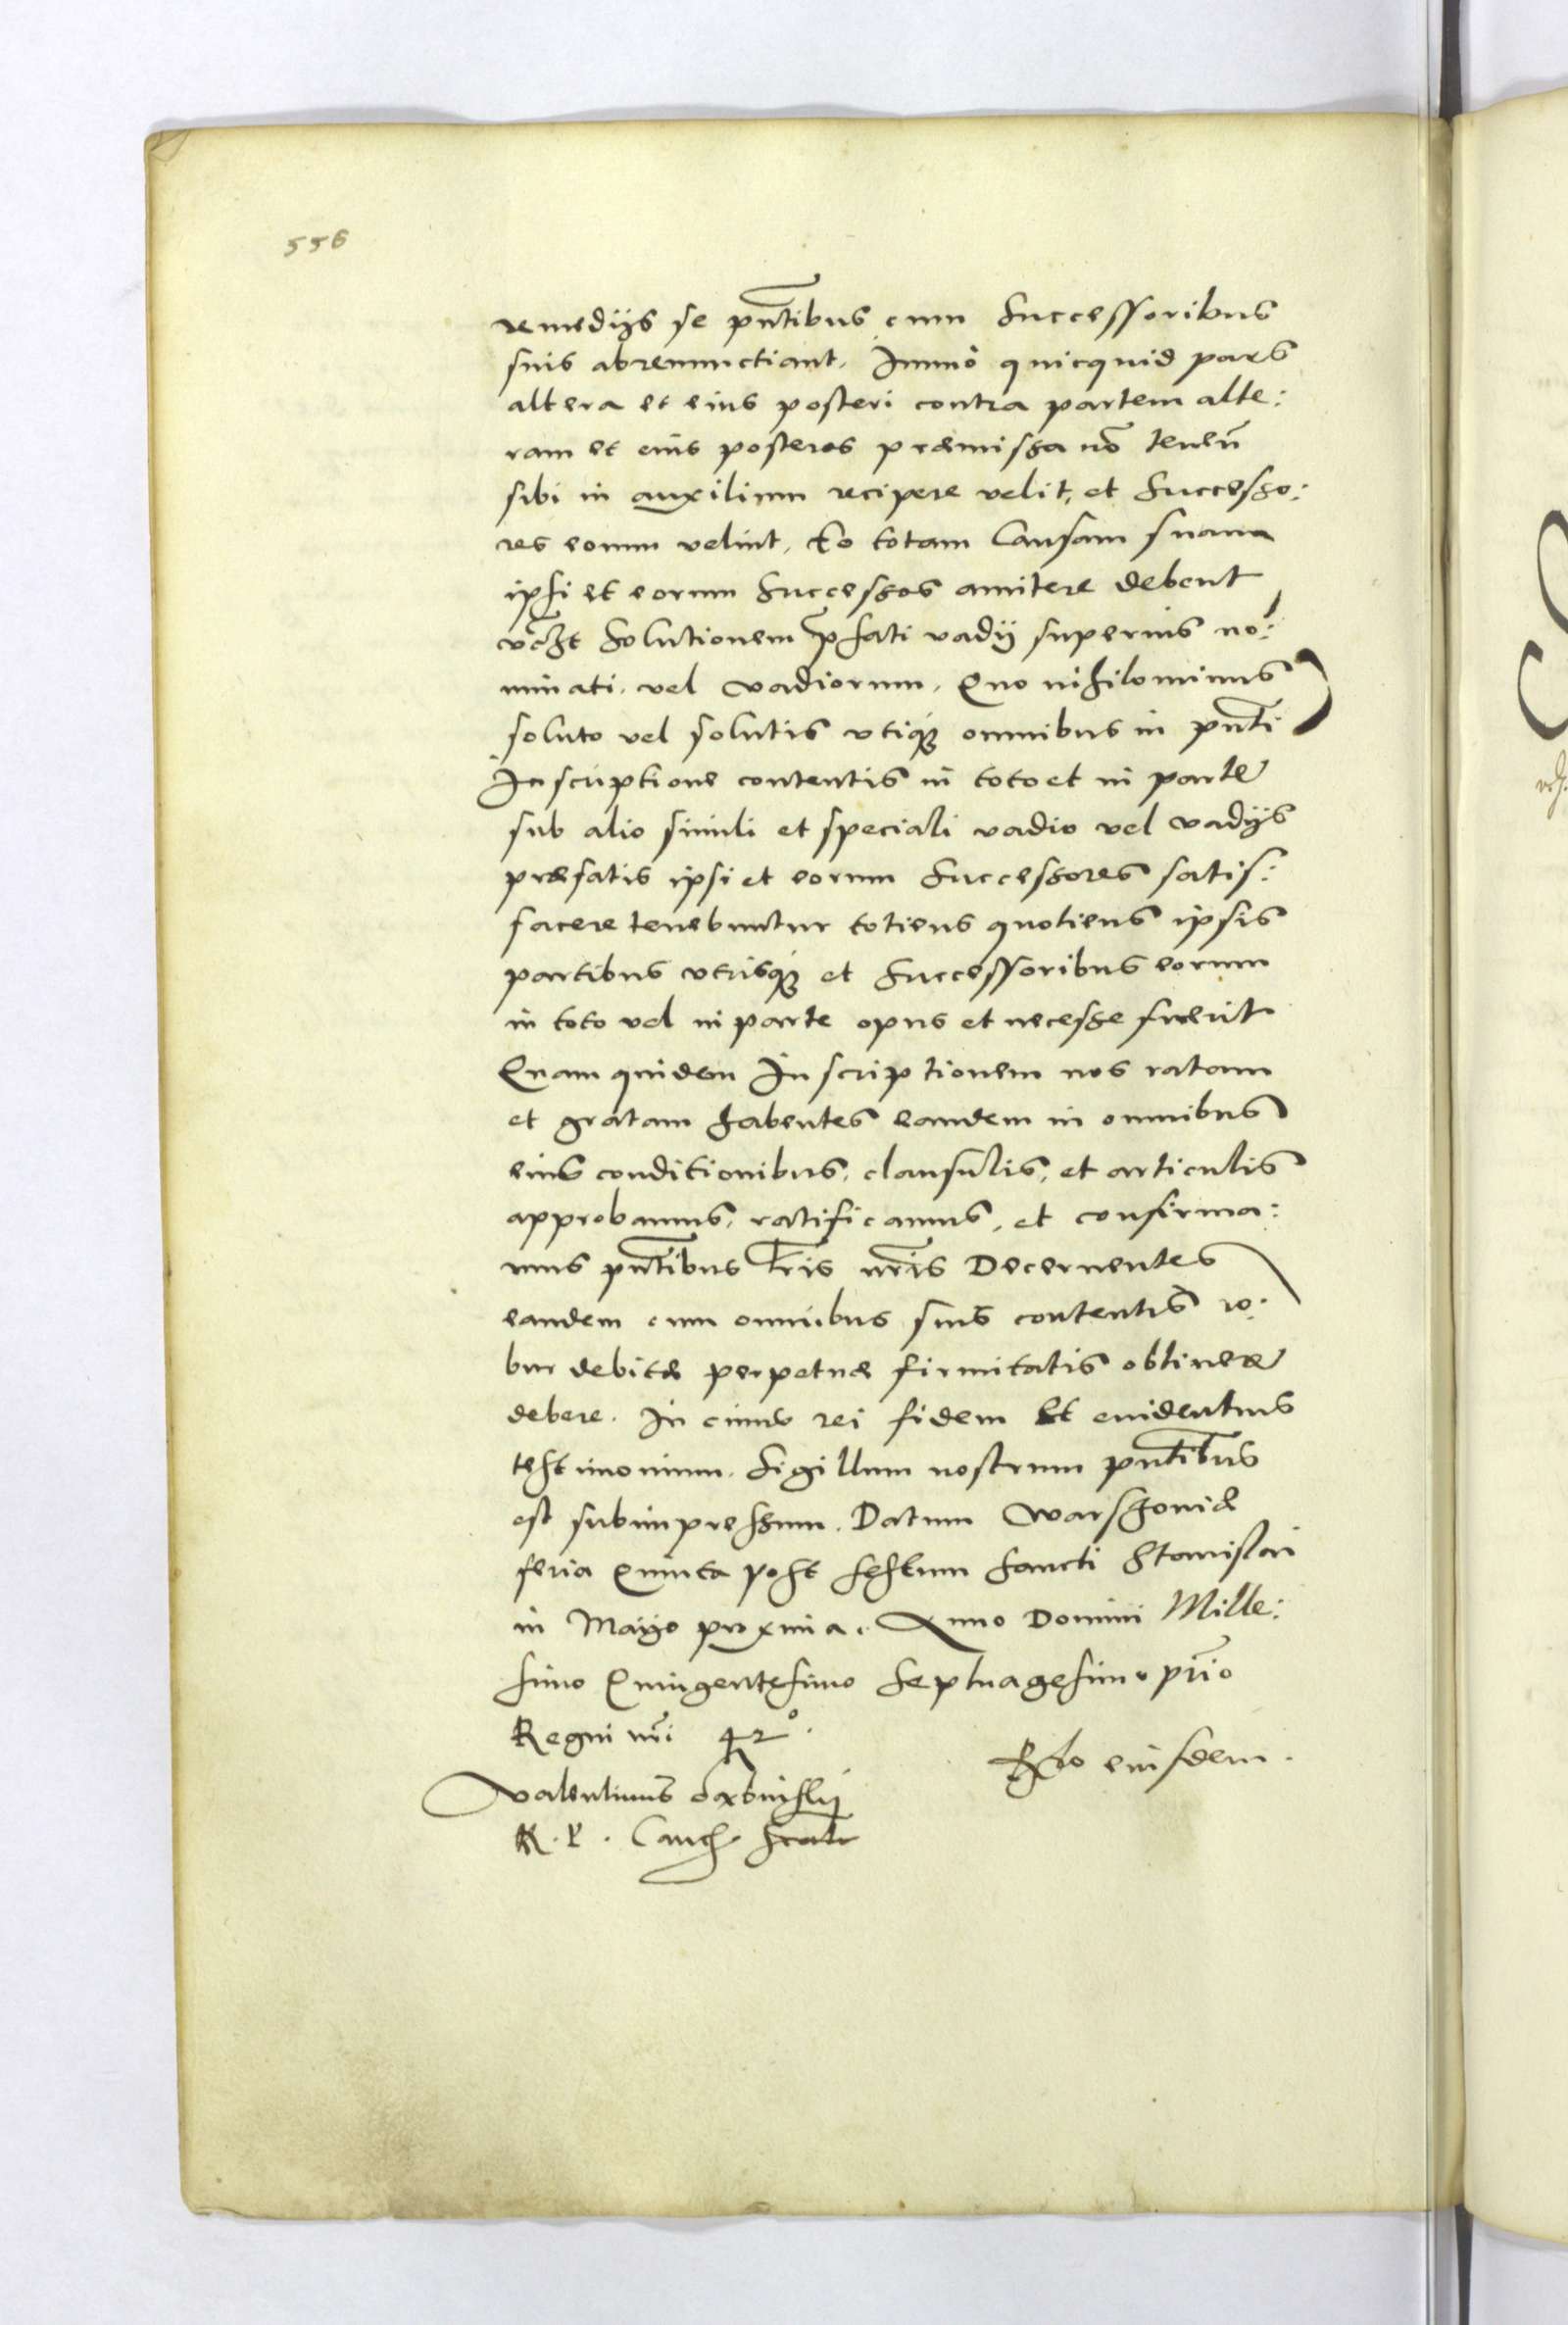 556
remedijs se pntibus cum Successoribus
suis abrenunctiant. Immo quicquid pars
altera et eius posteri contra partem alte:
ram et eius posteros præmissa no tenen
sibi in auxilium recipere velit, et Successo:
res eorum velint, Eo totam Causam suam
ipsi et eorum Successos amitere debent
Solutionem pfati vadij superius no:
minati. vel vadiorum. Quo nihilominus
soluto vel solutis utiq omnibus in pnti
Inscriptione contentis in toto et in parte
sub alio simili et speciali vadio vel vadijs
præfatis ipsi et eorum Successores satis:
facere tenebuntur totiens quotiens ipsis
partibus utrisq et Successoribus eorum
in toto vel in parte opus et necesse fuerit
Quam quidem Inscriptionem nos ratam
et gratam habentes eandem in omnibus
eius conditionibus, clausulis, et articulis
approbamus, ratificamus, et confirma:
mus pntibus lris nris Decernentes
eandem cum omnibus suis contentis ro:
bur debitæ perpetuæ firmitatis obtinere
debere. In cuius rei fidem Et euidentius
testimonium. Sigillum nostrum pntibus
est subimpressum. Datum Warschouiæ
feria Quinta post festum Sancti Stanislai
in Mayo proxima. Anno Domini Mille:
simo Quingentesimo Septuagesimo primo
Regni nri 42º.
Rlo eiusdem.
Valentinus
R. P. Canc.